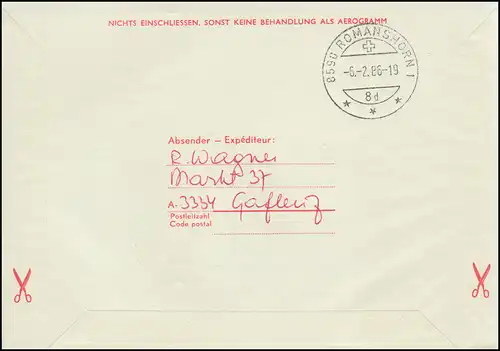 NICHTS EINSCHLIESSEN, SONST KEINE BEHANDLUNG ALS AEROGRAMM
8590 ROMANSHORN 1
-6.-2.86-19
8d
Absender – Expéditeur:
R. Wagner
Markt 37
A. 3334 Gaflenz
Postleitzahl
Code postal